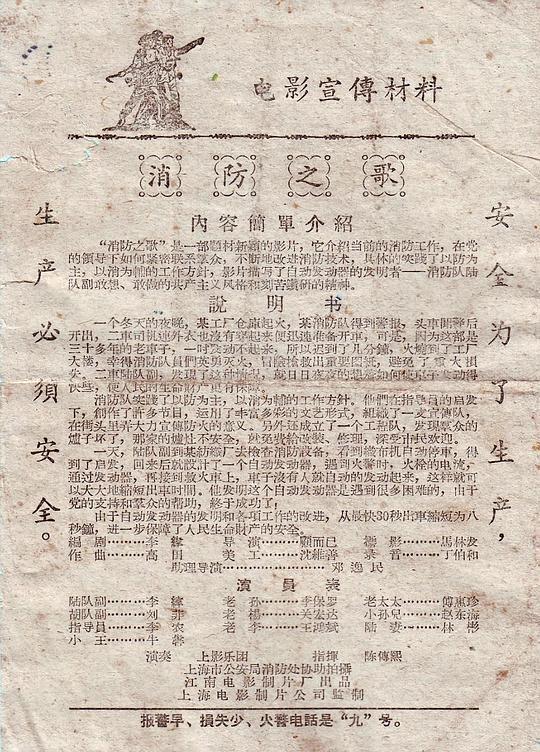 电影宣傳材料
消防之歌
安全为了生产，
生产必須安全。
內容簡單介紹
“消防之歌”是一部題材新穎的影片，它介紹当前的消防工作，在党
的領导下如何紧密联系羣众，不断地改进消防技术，具体的实践了以防为
主，以消为輔的工作方針，影片描写了自动发动器的发明者——消防队陆
队副敢想、敢做的共产主义风格和刻苦鑽研的精神。
說明书
一个冬天的夜晚，某工厂仓庫起火，某消防队得到警报，头車開警后
开出，二車司机連外衣也沒有穿起来便迅速准备开車，可是，因为这部
三十多年的老車子，一时发动不起来，所以迟到了几分鐘，火燒到了工厂
大楼，幸得消防队員們英勇灭火，冒險搶出重要图紙，避免了重大損
失。二車陆队副，发现了这种情况，成日日夜夜的想着如何使車子发动得
快些，使人民的生命財产更有保障。
消防队实践了以防为主，以消为輔的工作方針。他們在指导員的启发
下，創作了許多节目，运用了丰富多彩的文艺形式，組織了一支宣傳队，
在街头里弄大力宣傳防火的意义。另外还成立了一个工程队，发現羣众的
爐子坏了，那家的爐灶不安全，就免費給改裝、修理，深受市民欢迎。
一天，陆队副到某紡織厂去檢查消防設备，看到織布机自动停車，得
到了启发，回来后就設計了一个自动发动器，遇到火警时，火栓的电流，
通过发动器，再接到救火車上，車子沒有人就自动的发动起来，这样就可
以大大地縮短出車时間。他发明这个自动发动器是遇到很多困难的，由于
党的支持和羣众的帮助，終于成功了！
由于自动发动器的发明和各項工作的改进，从最快30秒出車縮短为八
秒鐘，进一步保障了人民生命財产的安全。
編劇……李緯 导演……顧而已 攝影……馬林发
作曲……高田 美工……沈維善 录音……丁伯和
助理导演……邓逸民
演員表
陆队副……李緯 老孙……李保罗 老太太……傅惠珍
胡队副……刘非 老楊……关宏达 小孙兒……赵东海
指导員……李农 老李……王鴻斌 陆妻……林彬
小王……牛犇
演奏 上影乐团 指揮 陈傳熙
上海市公安局消防处协助拍攝
江南电影制片厂出品
上海电影制片公司監制
报警早、損失少、火警电話是“九”号。